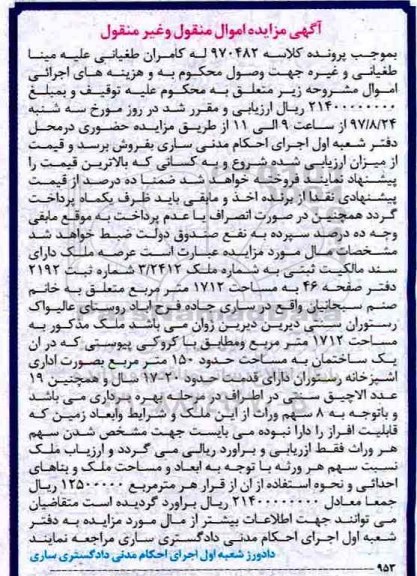 آگهی مزایده اموال منقول وغیر منقول
بموجب پرونده کلاسه ۹۷۰۴۸۲ له کامران طغیانی علیه مینا
طغیانی و غیره جهت وصول محکوم به و هزینه های اجرائی
اموال مشروحه زیر متعلق به محکوم علیه توقیف و بمبلغ
۲۱۴۰۰۰۰۰۰۰۰ ریال ارزیابی و مقرر شد در روز مورخ سه شنبه
۹۷/۸/۲۴ از ساعت ۹ الی ۱۱ از طریق مزایده حضوری درمحل
دفتر شعبه اول اجرای احکام مدنی ساری بفروش برسد و قیمت
از میزان ارزیابی شده شروع و به کسانی که بالاترین قیمت را
پیشنهاد نمایند فروخته خواهد شد ضمنا ده درصد از قیمت
پیشنهادی نقدا از برنده اخذ و مابقی باید ظرف یکماه پرداخت
گردد همچنین در صورت انصراف یا عدم پرداخت به موقع مابقی
وجه ده درصد سپرده به نفع صندوق دولت ضبط خواهد شد
مشخصات مال مورد مزایده عبارت است عرصه ملک دارای
سند مالکیت ثبتی به شماره ملک ۳/۲۴۱۲ شماره ثبت ۲۱۹۲
دفتر صفحه ۴۶ به مساحت ۱۷۱۲ متر مربع متعلق به خانم
صنم سبحانیان واقع در ساری جاده فرح اباد روستای عالیواک
رستوران سنتی دیرین دیرین ژوان می باشد ملک مذکور به
مساحت ۱۷۱۲ متر مربع ومطابق با کروکی پیوستی که در ان
یک ساختمان به مساحت حدود ۱۵۰ متر مربع بصورت اداری
اشپزخانه رستوران دارای قدمت حدود ۲۰-۱۷ سال و همچنین ۱۹
عدد الاچیق سنتی در اطراف در مرحله بهره برداری می باشد
و باتوجه به ۸ سهم وراث از این ملک و شرایط وابعاد زمین که
قابلیت افراز را دارا نبوده می بایست جهت مشخص شدن سهم
هر وراث فقط ازریابی و براورد ریالی می گردد و ارزیاب ملک
نسبت سهم هر ورثه با توجه به ابعاد و مساحت ملک و بناهای
احداثی و نحوه استفاده از ان از قرار هر مترمربع ۱۲۵۰۰۰۰۰ ریال
جمعا معادل ۲۱۴۰۰۰۰۰۰۰۰ ریال براورد گردیده است متقاضیان
می توانند جهت اطلاعات بیشتر از مال مورد مزایده به دفتر
شعبه اول اجرای احکام مدنی دادگستری ساری مراجعه نمایند
دادورز شعبه اول اجرای احکام مدنی دادگستری ساری
۹۵۳